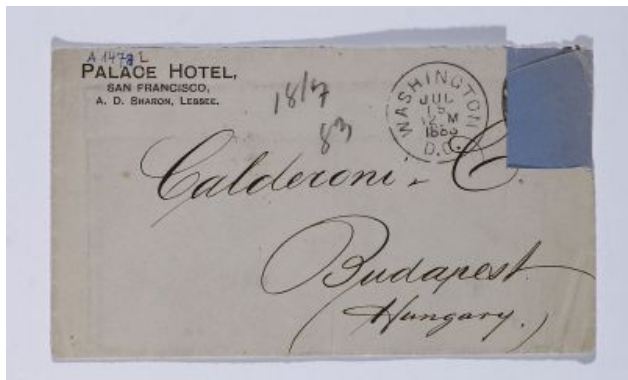 A 1478 L
PALACE HOTEL,
SAN FRANCISCO,
A. D. SHARON, LESSEE.
18/7
83
WASHINGTON
JUL
15
12 M
1883
D.C.
Calderoni & C.
Budapest
(Hungary.)